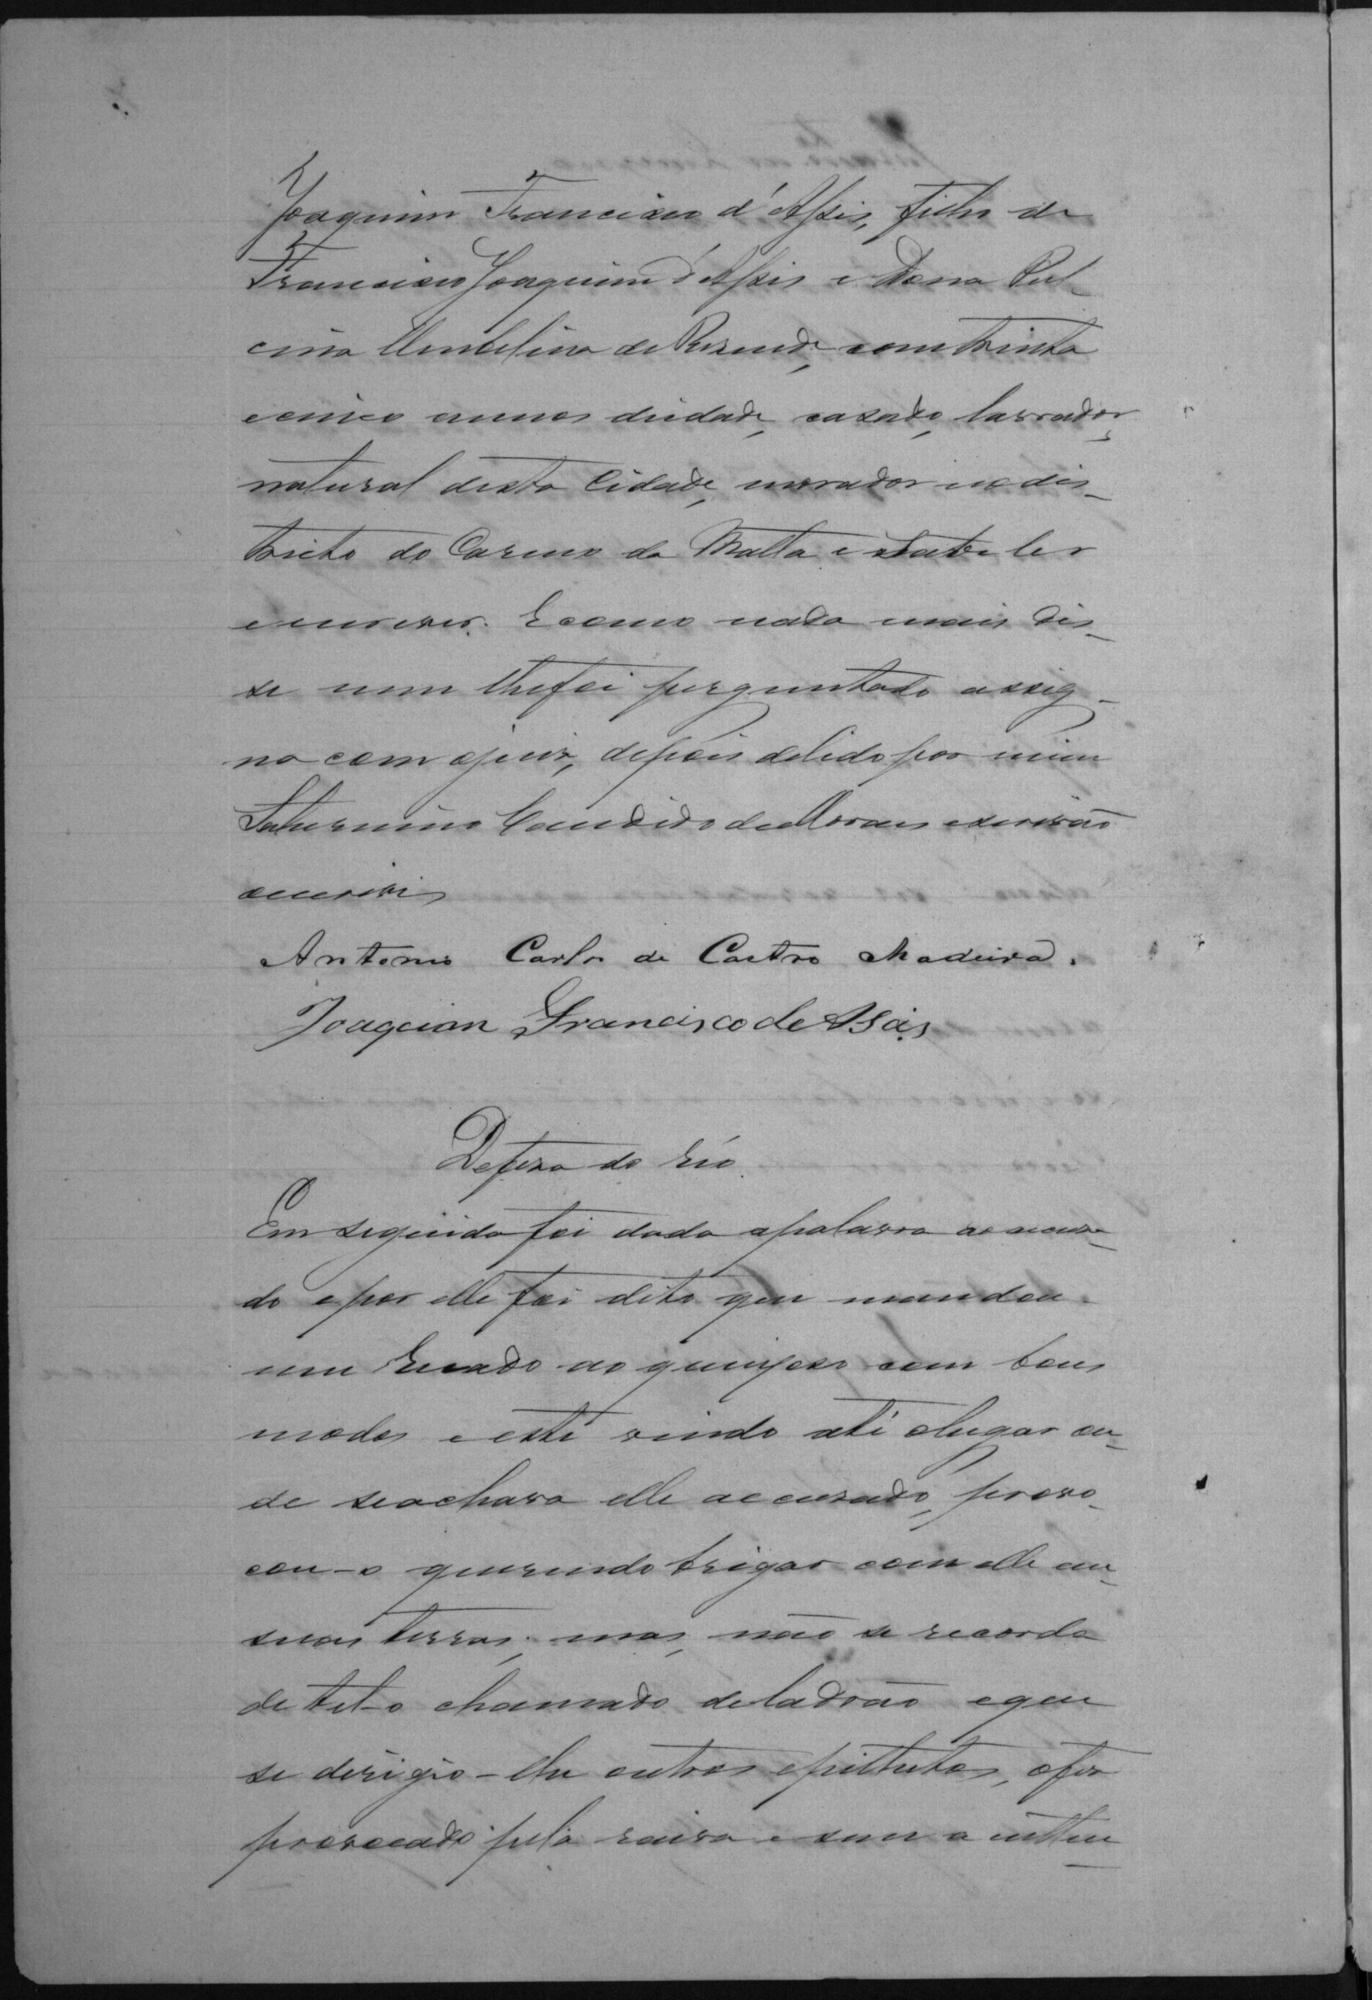 Joaquim Francisco d'Assis, filho de
Francisco Joaquim d'Assis e Dona Pul-
cina Umbelina de Resende, com trinta
e cinco annos deidade, casado, lavrador,
natural desta Cidade, morador no dis-
tricto do Carmo da Matta e sabe ler
e escrever. E como nada mais dis-
se nem lhefoi perguntado assig-
na com ojuiz, depois delido por mim
Saturnino Candido de Moraes escrivão
oescrevi
Antonio Carlos de Castro Madeira.
Joaquim Francisco de Asis
Defeza do réo.
Em seguida foi dada apalavra ao accusa-
do e por elle foi dito que mandou
um recado ao queixoso com bons
modos e este vindo até olugar on-
de seachava elle accusado, provo-
cou-o querendo brigar com elle em
suas terras; mas, não se recorda
de tel-o chamado deladrão e que
se derigio-lhe outros epithetos, ofez
provocado pela raiva e sem a inten